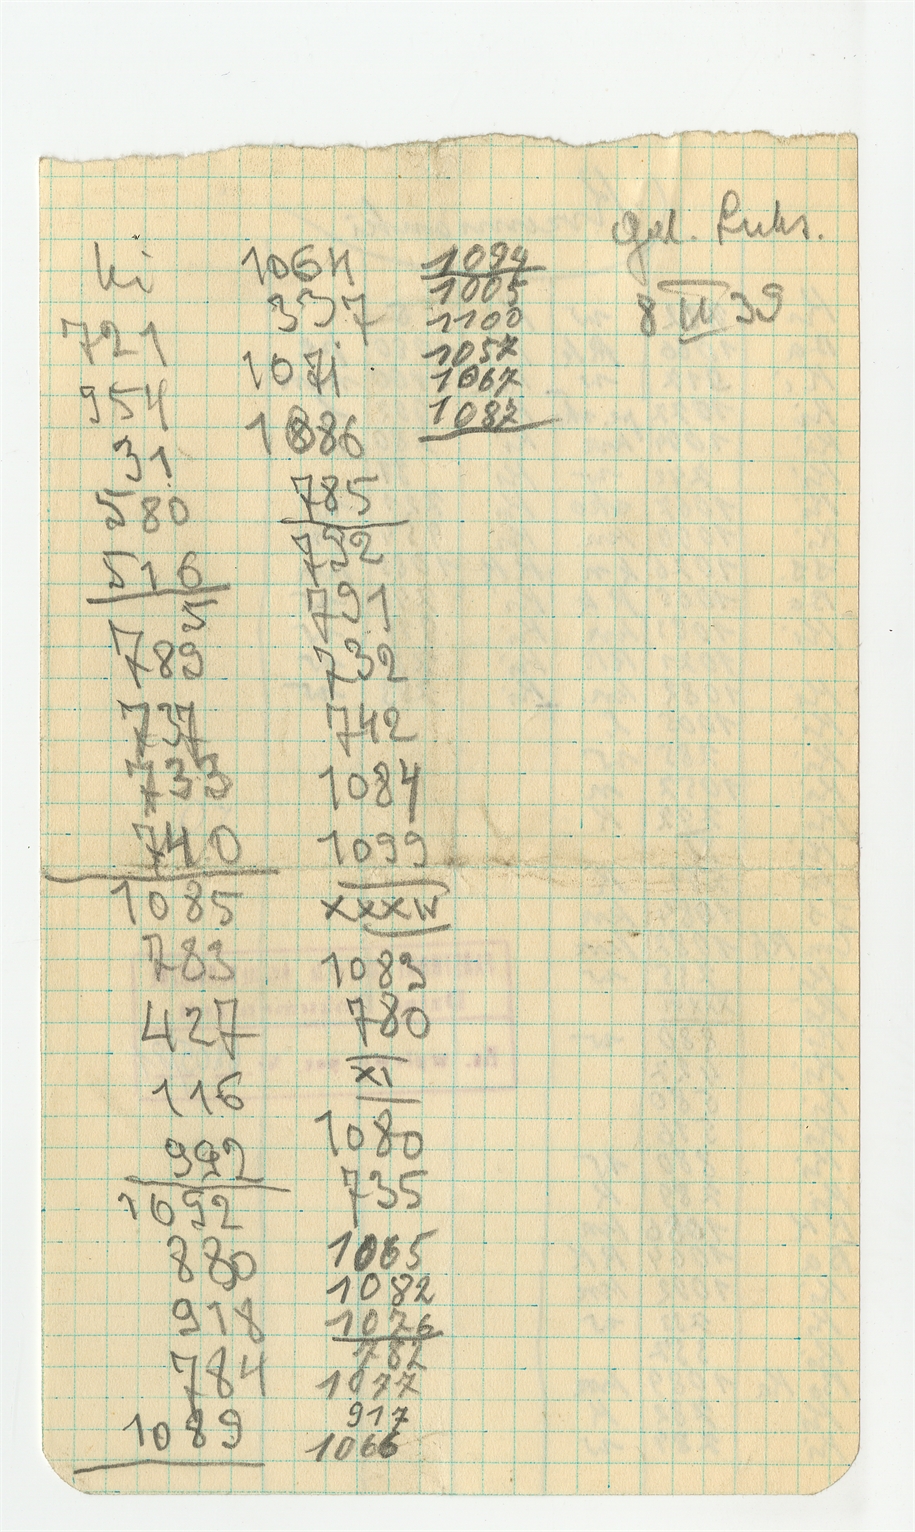 Ki
721
954
31
580
516
5
789
737
733
740
1085
783
427
116
992
1092
880
918
784
1089
1064
337
1071
1086
785
792
791
732
742
1084
1099
XXXIV
1083
780
XI
1080
735
1065
1082
1076
782
1077
917
1066
1094
1005
1100
1057
1067
1087
8 III 39